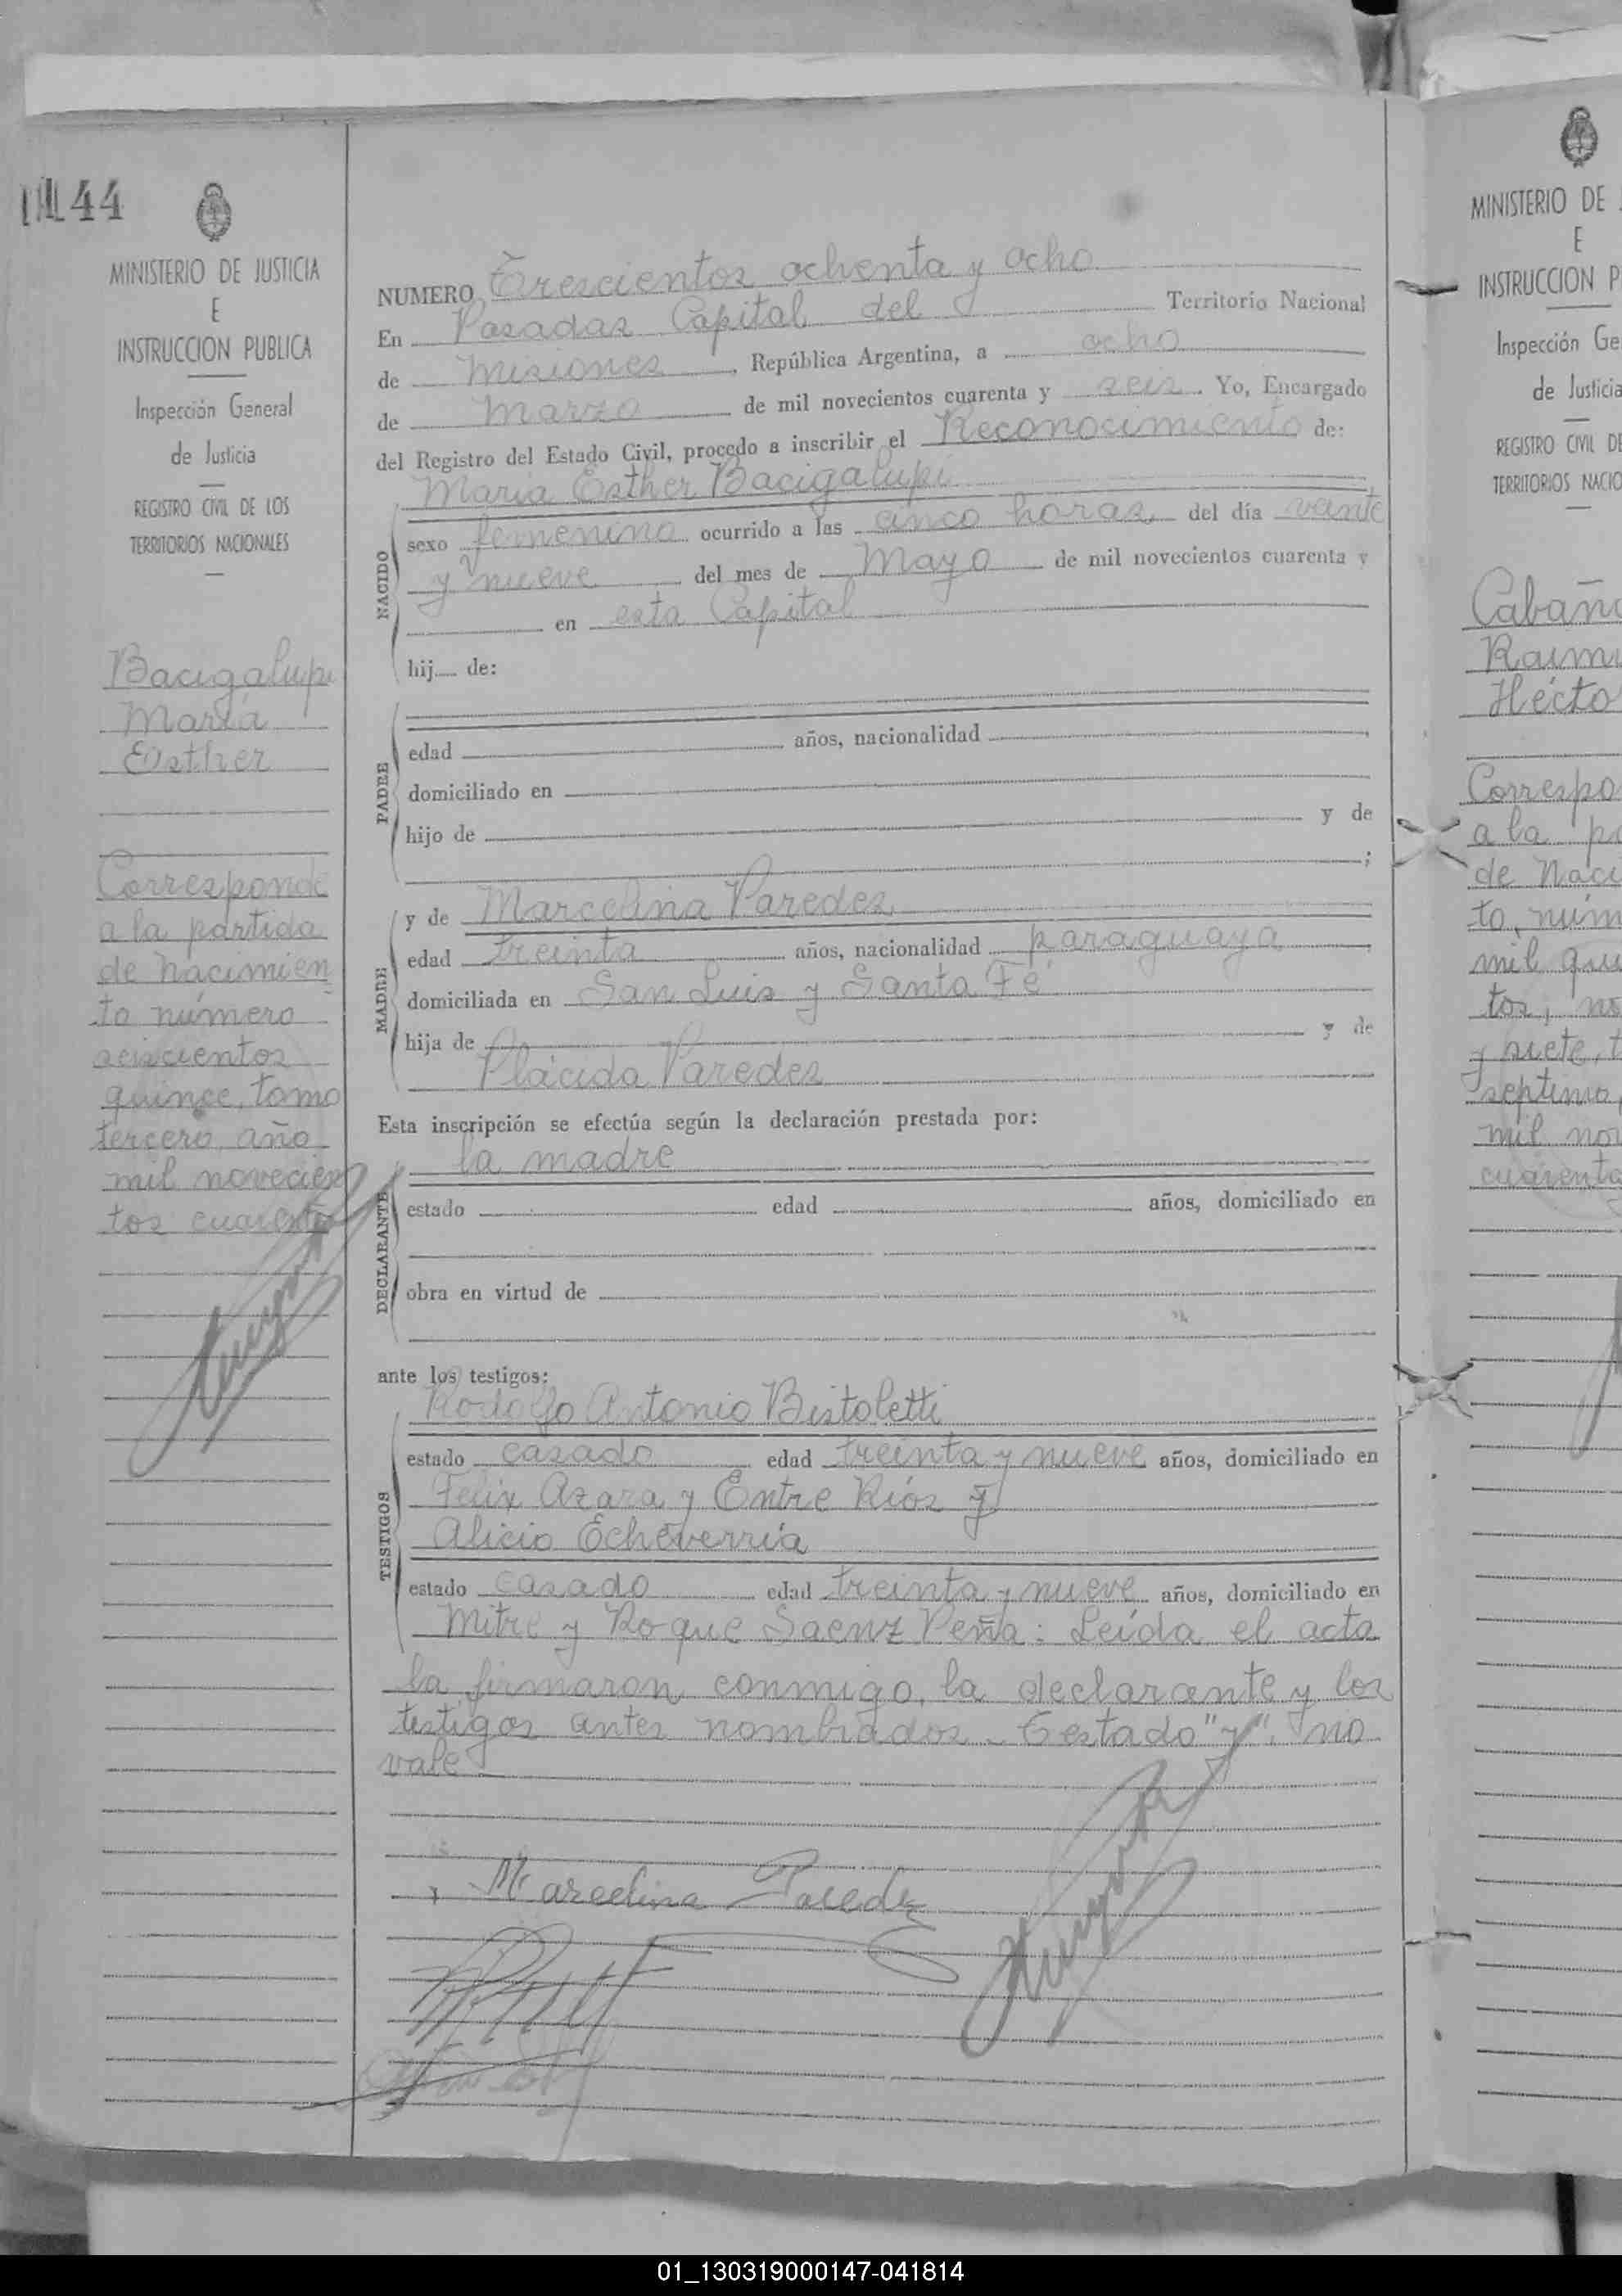 44
MINISTERIO DE JUSTICIA
E
INSTRUCCION PUBLICA
Inspección General
de Justicia
REGISTRO CIVIL DE LOS
TERRITORIOS NACIONALES
Bacigalupi
María
Esther
Corresponde
a la partida
de nacimien
to número
seiscientos
quince, tomo
tercero, año
mil novecien
tos cuarenta
NUMERO Trescientos ochenta y ocho
En Posadas Capital del Territorio Nacional
de Misiones, República Argentina, a ocho
de Marzo de mil novecientos cuarenta y seis. Yo, Encargado
del Registro del Estado Civil, procedo a inscribir el Reconocimiento de:
María Esther Bacigalupi
NACIDO
sexo femenino ocurrido a las cinco horas del día veinte
y nueve del mes de Mayo de mil novecientos cuarenta y
en esta Capital
hij de:
PADRE
edad años, nacionalidad
domiciliado en
hijo de y de
;
MADRE
y de Marcelina Paredes
edad treinta años, nacionalidad paraguaya
domiciliada en San Luis y Santa Fé
hija de y de
Plácida Paredes
Esta inscripción se efectúa según la declaración prestada por:
la madre
DECLARANTE
estado edad años, domiciliado en
obra en virtud de
ante los testigos:
Rodolfo Antonio Bistoletti
TESTIGOS
estado casado edad treinta y nueve años, domiciliado en
Felix Azara y Entre Ríos y
Alicio Echeverría
estado casado edad treinta y nueve años, domiciliado en
Mitre y Roque Saenz Peña: Leída el acta
la firmaron conmigo, la declarante y los
testigos antes nombrados. Testado "y" no
vale
Marcelina Paredes
MINISTERIO DE
E
INSTRUCCION P
Inspección Ge
de Justicia
REGISTRO CIVIL DE
TERRITORIOS NACIO
Cabañ
Raim
Hécto
Correspo
a la pa
de Naci
to, núm
mil qui
tos, no
y siete, t
septimo,
mil nov
cuarenta
01_130319000147-041814